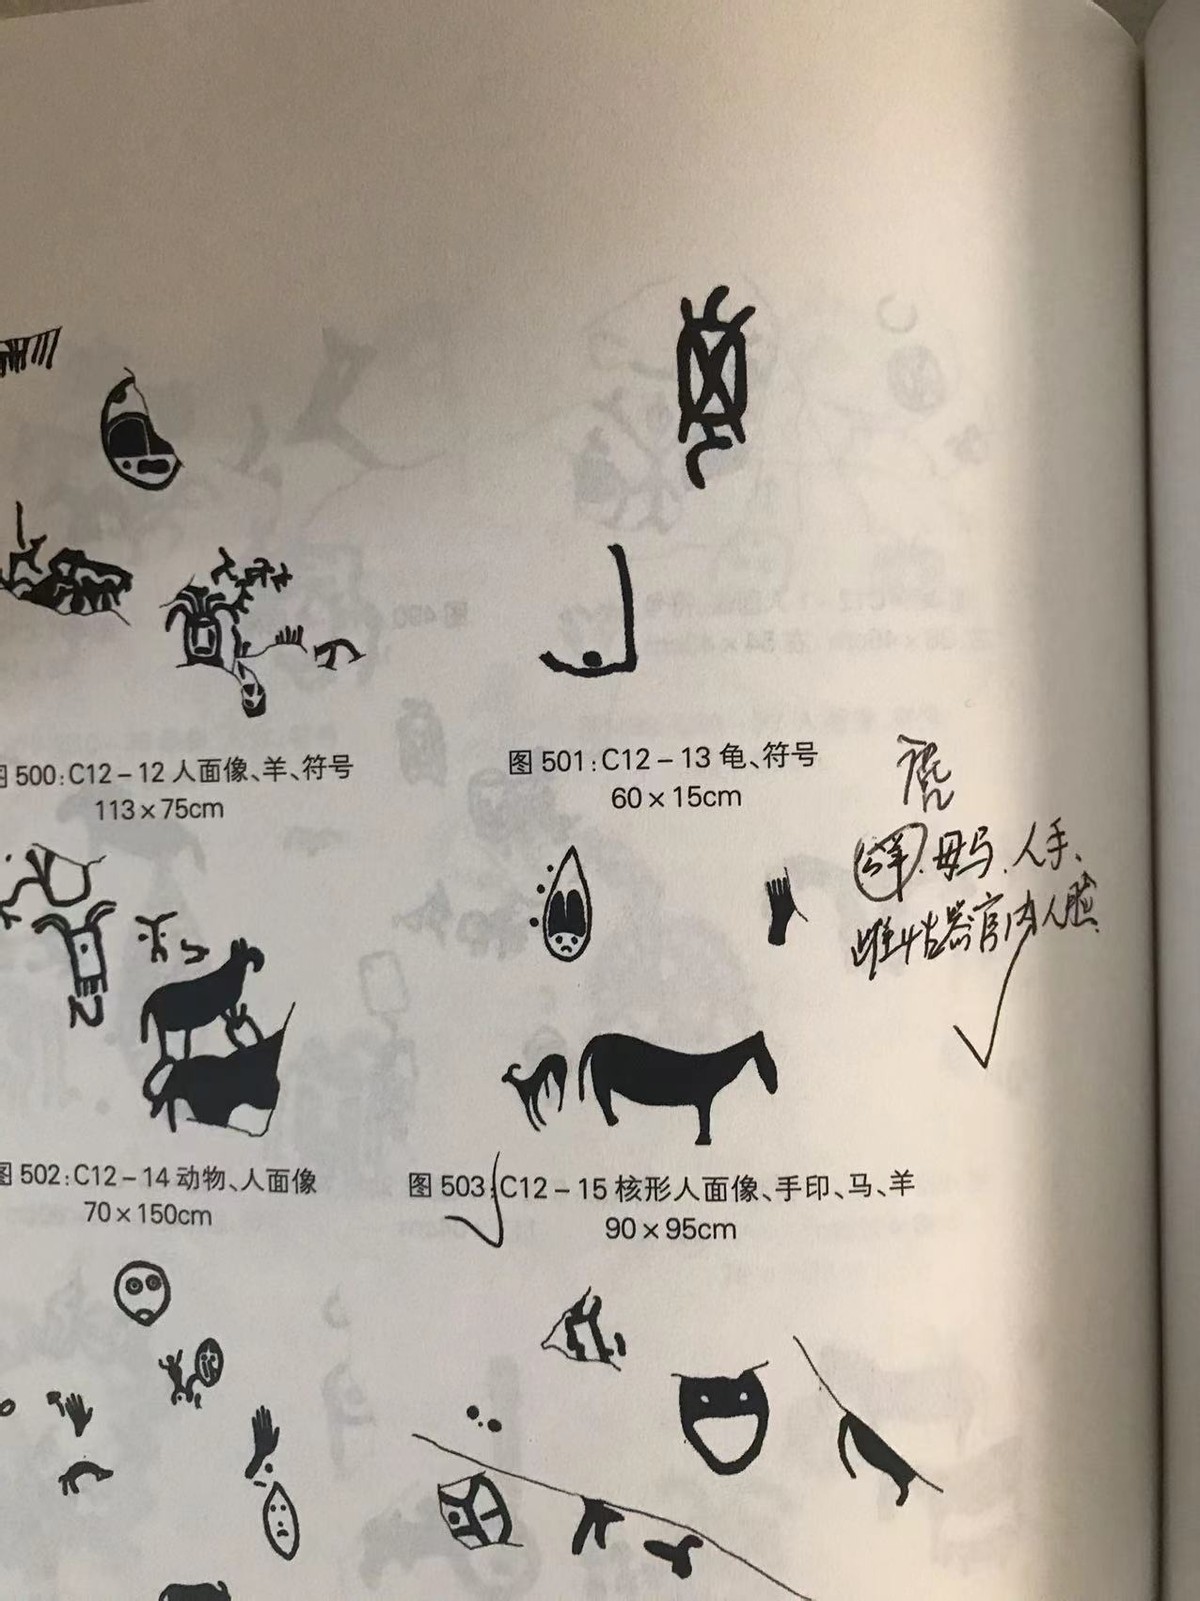 图 500:C12－12 人面像、羊、符号
113×75cm
图 501:C12－13 龟、符号
60×15cm
母马、人手、
雌性器官内人脸
图 502:C12－14 动物、人面像
70×150cm
图 503:C12－15 核形人面像、手印、马、羊
90×95cm